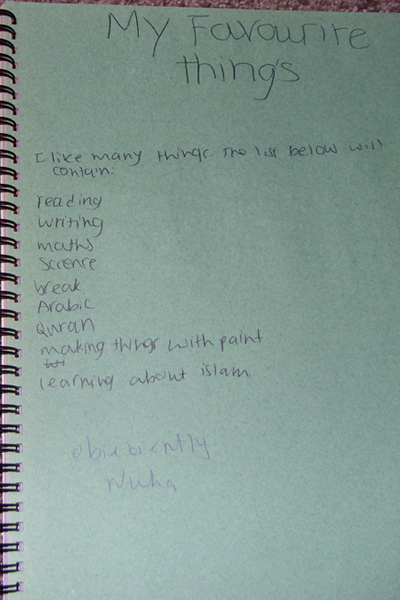 My Favourite
thing's
I like many things. The list below will
contain:
reading
writing
maths
Science
break
Arabic
Quran
making things with paint
learning about islam
Nuha